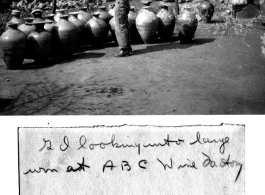 G I looking into large
urn at A B C Wine Factory